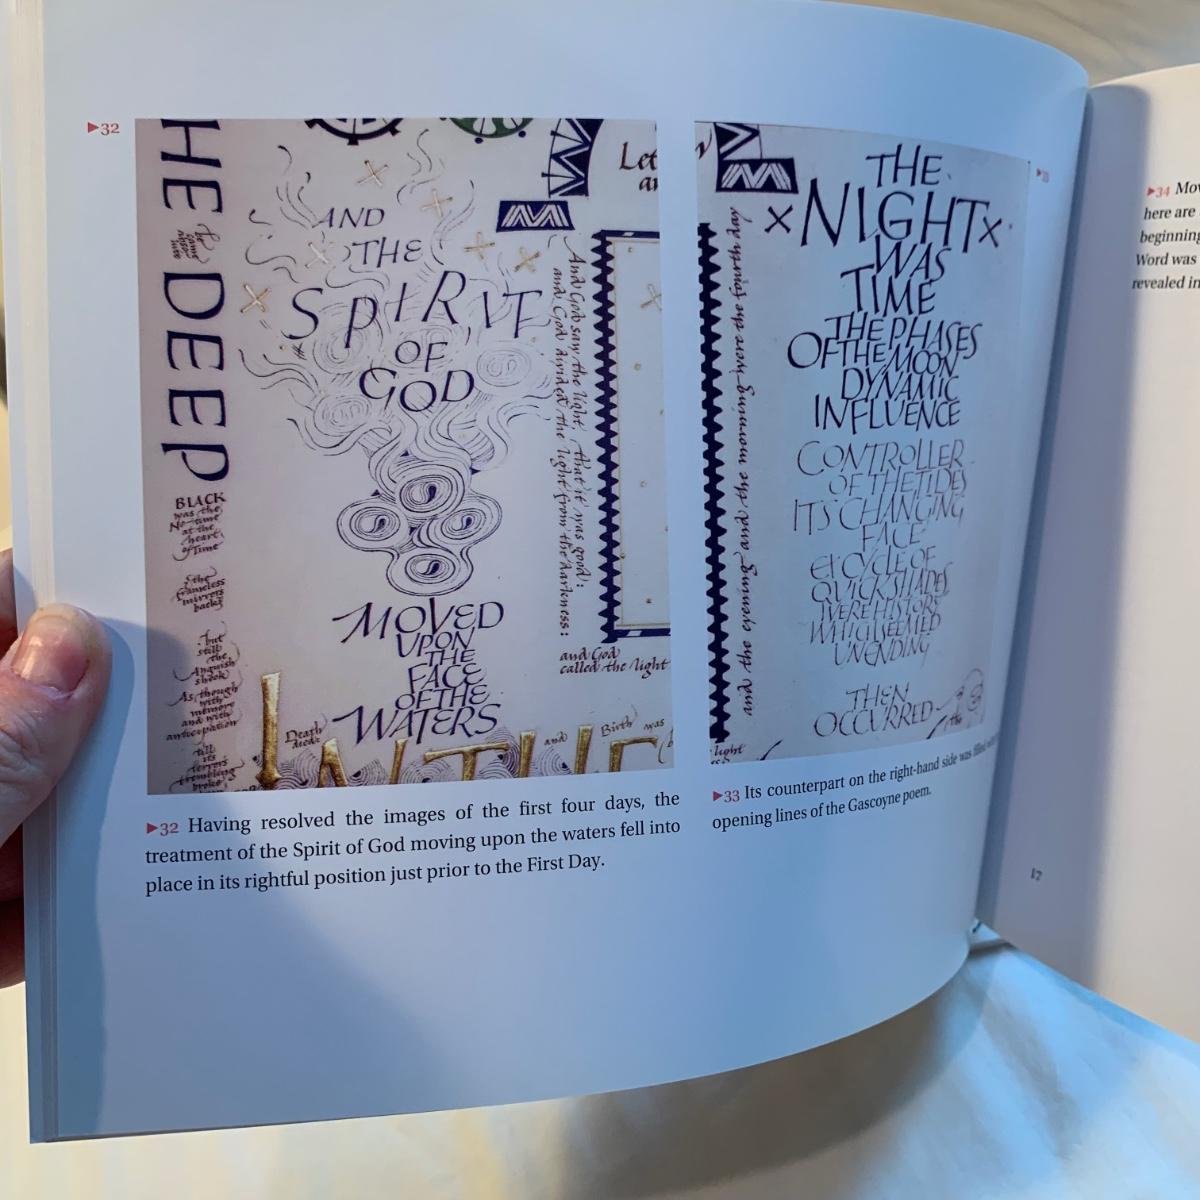 ▶32
HE DEEP
BLACK
was the
No-time
at the
heart
of Time
& the
frameless
mirrors
backs
but
still
the
Anguish
shook
As though
with
memory
and with
anticipation
till
its
terrors
trembling
broke
AND
THE
SPIRIT
OF
GOD
MOVED
UPON
THE
FACE
OF THE
WATERS
Death
and
Birth was
Let
an
And God saw the light, that it was good:
and God divided the light from the darkness:
and God
called the light
▶32 Having resolved the images of the first four days, the
treatment of the Spirit of God moving upon the waters fell into
place in its rightful position just prior to the First Day.
▶33
and the evening and the morning were the fourth day
THE
NIGHT
WAS
TIME
THE PHASES
OF THE MOON
DYNAMIC
INFLUENCE
CONTROLLER
OF THE TIDES
ITS CHANGING
FACE
CYCLE OF
QUICK SHADES
WERE HISTORY
WHICH SEEMED
UNENDING
THEN
OCCURRED
the
light
▶33 Its counterpart on the right-hand side was filled
opening lines of the Gascoyne poem.
17
▶34 Mov
here are
beginning
Word was
revealed in